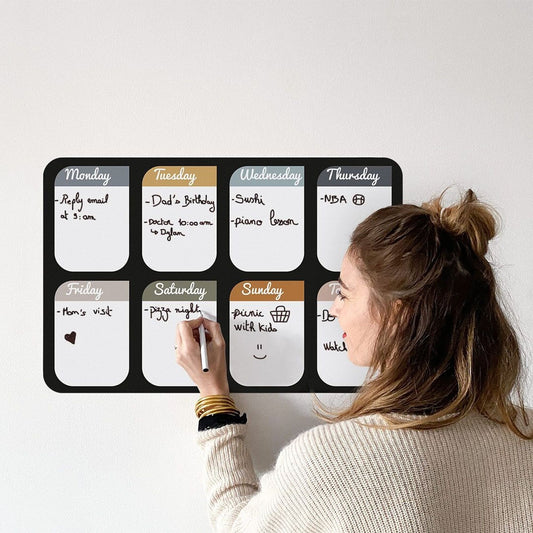 Monday
- Reply email
at 9:am
Tuesday
- Dad's Birthday
- Doctor 10:00am
↳ Dylan
Wednesday
- Sushi
- piano lesson
Thursday
- NBA
Friday
- Mom's visit
Saturday
- pizza night
Sunday
- picnic
with kids
Watch